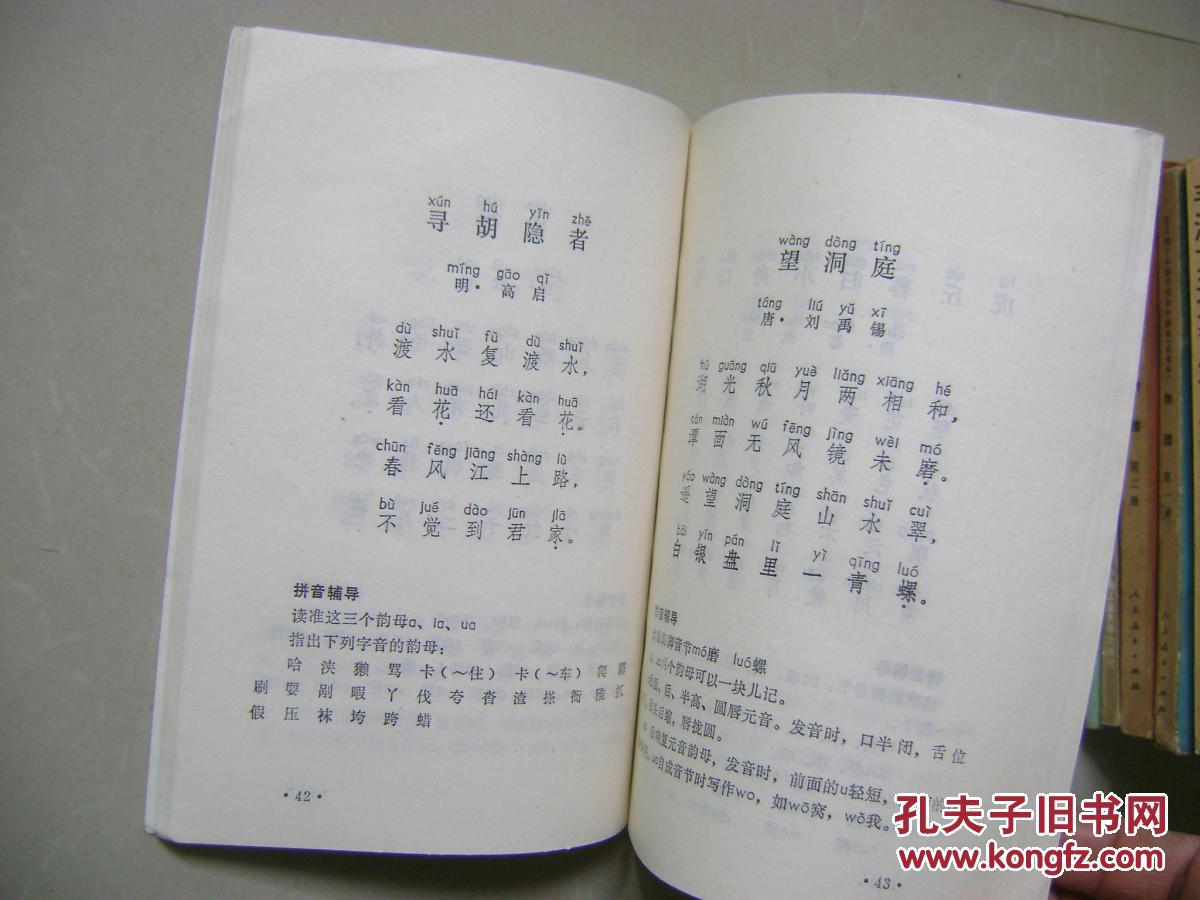 xún hú yǐn zhě
寻胡隐者
míng gāo qǐ
明·高启
dù shuǐ fù dù shuǐ
渡水复渡水，
kàn huā hái kàn huā
看花还看花。
chūn fēng jiāng shàng lù
春风江上路，
bù jué dào jūn jiā
不觉到君家。
拼音辅导
读准这三个韵母ɑ、iɑ、uɑ
指出下列字音的韵母：
哈 浃 獭 骂 卡（～住） 卡（～车） 爬 霸
刷 耍 剐 暇 丫 伐 夸 沓 渣 搽 衙 雅 抓
假 压 袜 垮 跨 蜡
·42·
wàng dòng tíng
望洞庭
táng liú yǔ xī
唐·刘禹锡
hú guāng qiū yuè liǎng xiāng hé
湖光秋月两相和，
tán miàn wú fēng jìng wèi mó
潭面无风镜未磨。
yáo wàng dòng tíng shān shuǐ cuì
遥望洞庭山水翠，
bái yín pán lǐ yì qīng luó
白银盘里一青螺。
拼音辅导
脚音节mó磨 luó螺
个韵母可以一块儿记。
后、半高、圆唇元音。发音时，口半闭，舌位
后缩，唇拢圆。
复元音韵母，发音时，前面的u轻短，
uo自成音节时写作wo，如wō窝，wǒ我。
·43·
孔夫子旧书网
www.kongfz.com
第二册
第一册
人民教育出版社